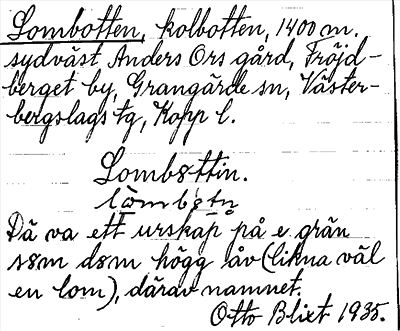 Lombotten, kolbotten, 1400 m.
sydväst Anders Ors gård, Fröjd-
berget by, Grangärde sn, Väster-
bergslags tg, Kopp l.
Lombottin.
Då va ett urskap på e grän
søm døm högg åv (likna väl
en lom), därav namnet.
Otto Blixt 1935.